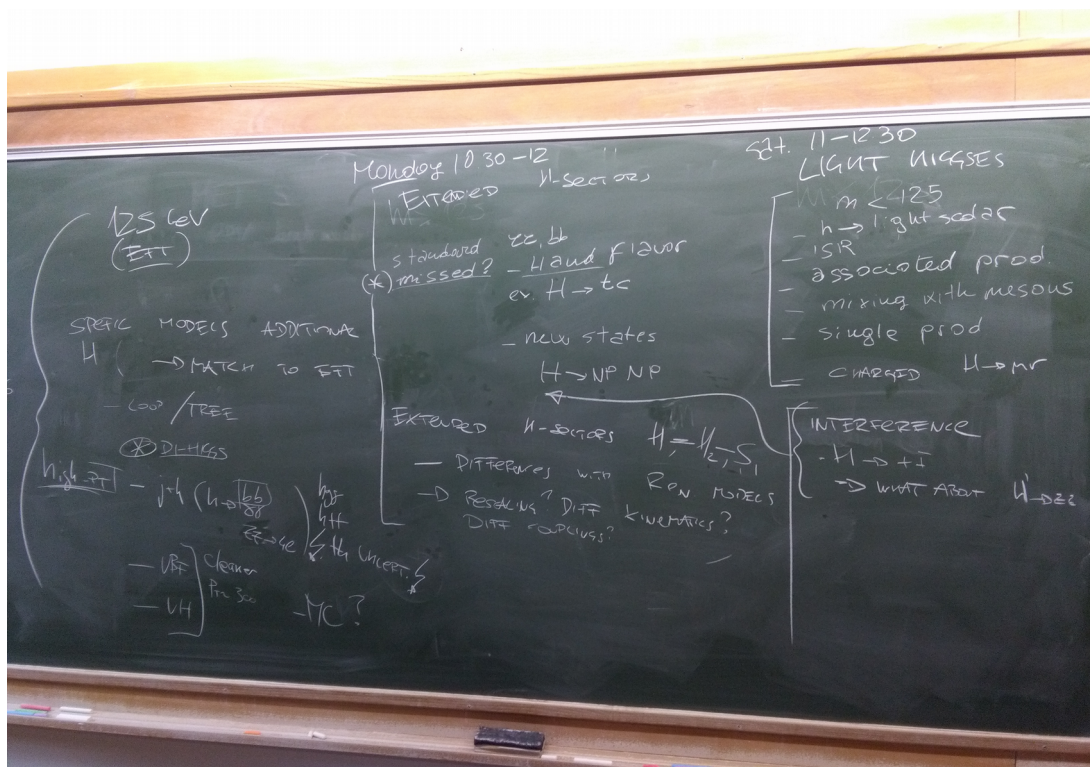 125 GeV
(EFT)
MODELS ADDITIONAL
H
→ MATCH TO EFT
- LOOP / TREE
* DI-HIGGS
high-PT - j+h (h→ bb
htt
th uncert.
- VBF
cleaner
- VH
- MC?
Monday 10 30-12
EXTENDED H-SECTORS
standard ττ, bb
(*) missed? - H and flavor
ex H → tc
- new states
H → NP NP
EXTENDED H-SECTORS
- DIFFERENCES WITH MODELS
DIFF KINEMATICS?
DIFF COUPLINGS?
Sat. 11-12 30
LIGHT HIGGSES
m < 125
- h → light scalar
- ISR
- associated prod.
- mixing with mesons
- single prod
CHARGED
INTERFERENCE
- H → tt
→ WHAT ABOUT